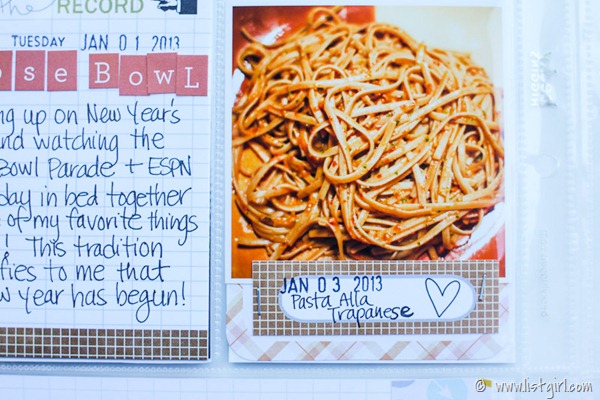 the RECORD
TUESDAY JAN 01 2013
OSE BOWL
ng up on New Year's
nd watching the
Bowl Parade + ESPN
day in bed together
of my favorite things
! This tradition
fies to me that
w year has begun!
JAN 03 2013
Pasta Alla
Trapanese
© www.listgirl.com